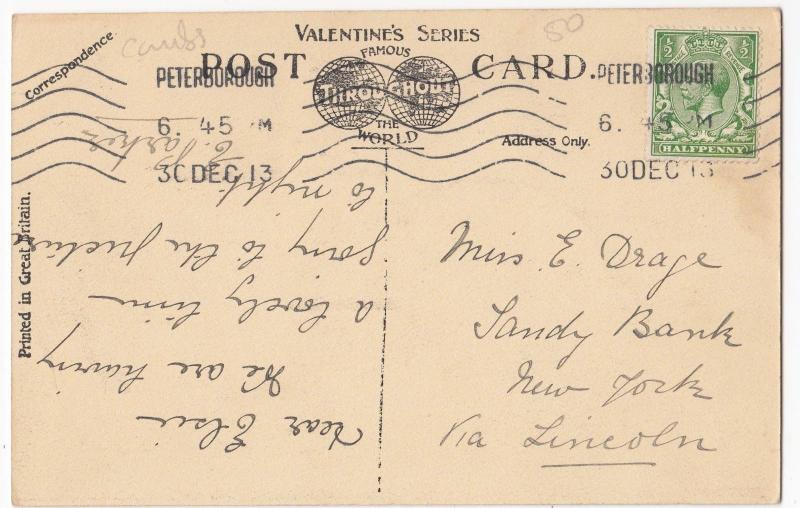 Cambs
50
VALENTINE'S SERIES
FAMOUS
POST CARD.
THROUGHOUT
THE
WORLD
Correspondence.
Address Only.
Printed in Great Britain.
PETERBOROUGH
6. 45 PM
30 DEC 13
PETERBOROUGH
6. 45 PM
30 DEC 13
1/2 1/2
HALFPENNY
Miss E. Drage
Sandy Bank
New York
Via Lincoln
Dear Elsie
We are having
a lovely time
going to the picture
to night
E. Parker